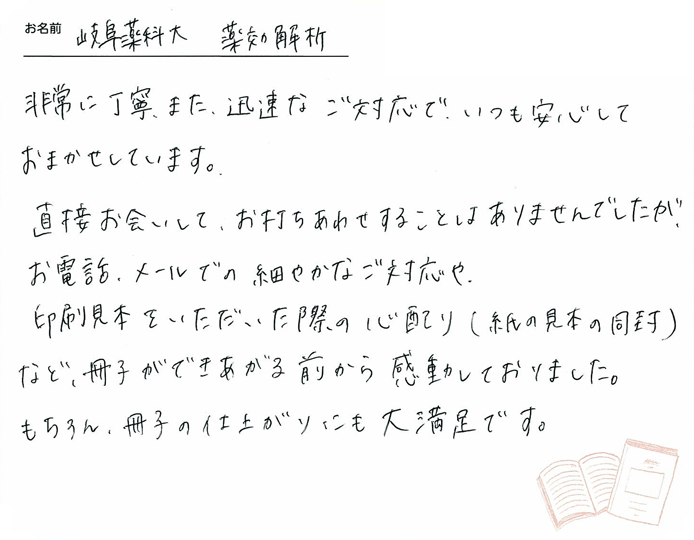 お名前 岐阜薬科大 薬効解析
非常に丁寧、また、迅速なご対応で、いつも安心して
おまかせしています。
直接お会いして、お打ちあわせすることはありませんでしたが、
お電話、メールでの細やかなご対応や、
印刷見本をいただいた際の心配り(紙の見本の同封)
など、冊子ができあがる前から感動しておりました。
もちろん、冊子の仕上がりにも大満足です。